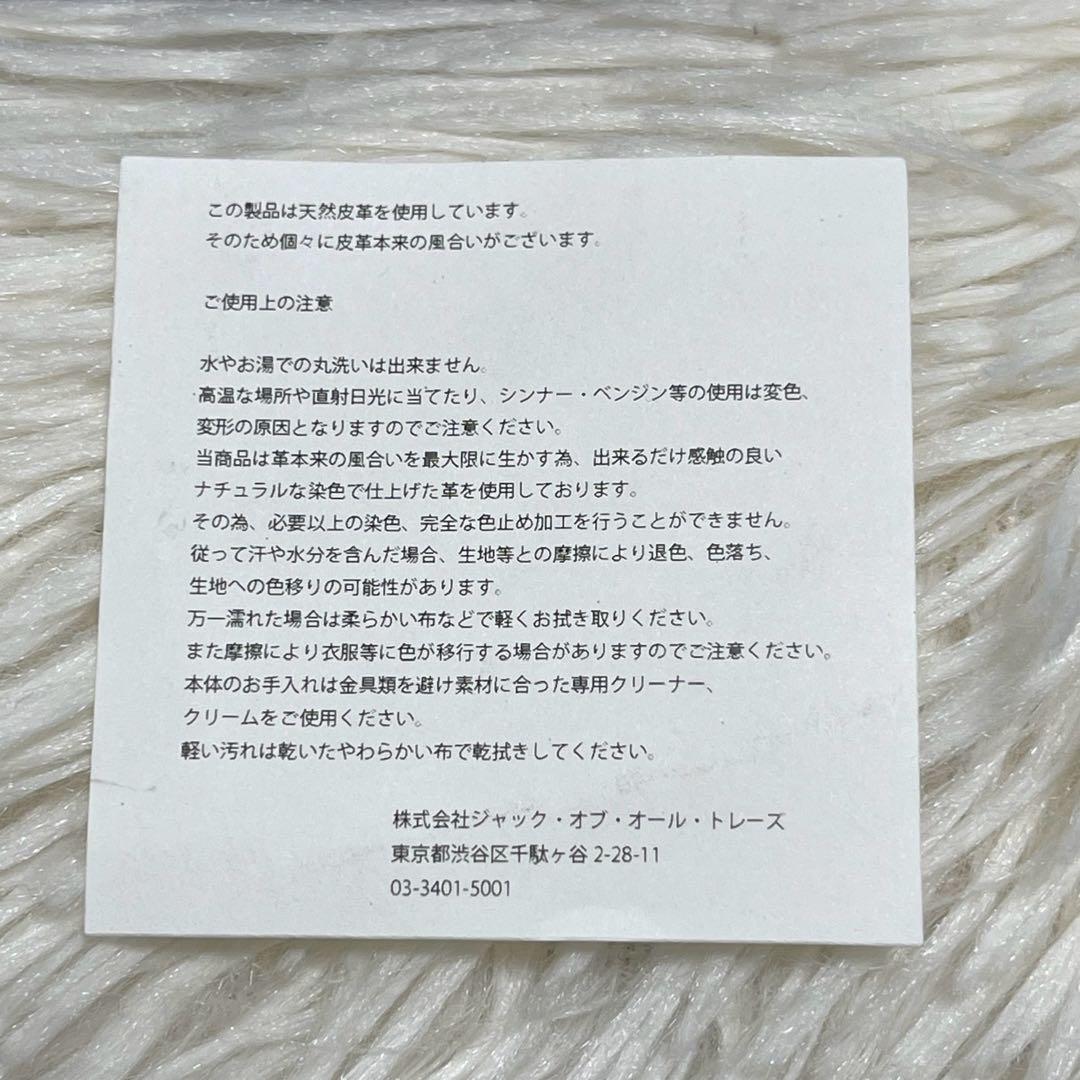 この製品は天然皮革を使用しています。
そのため個々に皮革本来の風合いがございます。
ご使用上の注意
水やお湯での丸洗いは出来ません。
高温な場所や直射日光に当てたり、シンナー・ベンジン等の使用は変色、
変形の原因となりますのでご注意ください。
当商品は革本来の風合いを最大限に生かす為、出来るだけ感触の良い
ナチュラルな染色で仕上げた革を使用しております。
その為、必要以上の染色、完全な色止め加工を行うことができません。
従って汗や水分を含んだ場合、生地等との摩擦により退色、色落ち、
生地への色移りの可能性があります。
万一濡れた場合は柔らかい布などで軽くお拭き取りください。
また摩擦により衣服等に色が移行する場合がありますのでご注意ください。
本体のお手入れは金具類を避け素材に合った専用クリーナー、
クリームをご使用ください。
軽い汚れは乾いたやわらかい布で乾拭きしてください。
株式会社ジャック・オブ・オール・トレーズ
東京都渋谷区千駄ヶ谷 2-28-11
03-3401-5001